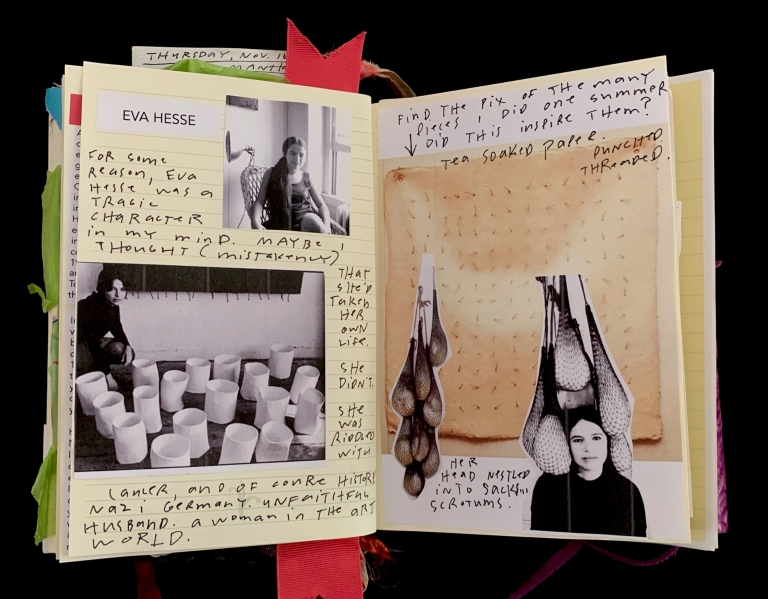 THURSDAY, NOV. 16
EVA HESSE
FOR SOME
REASON, EVA
HESSE WAS A
TRAGIC
CHARACTER
IN MY MIND. MAYBE I
THOUGHT (MISTAKENLY)
THAT
SHE'D
TAKEN
HER
OWN
LIFE.
SHE
DIDN'T.
SHE
WAS
RIDDLED
WITH
CANCER, AND OF COURSE HISTORY
NAZI GERMANY. UNFAITHFUL
HUSBAND. A WOMAN IN THE ART
WORLD.
FIND THE PIX OF THE MANY
PIECES I DID ONE SUMMER
DID THIS INSPIRE THEM?
TEA SOAKED PAPER.
PUNCHED.
THREADED.
HER
HEAD NESTLED
INTO SACKS,
SCROTUMS.